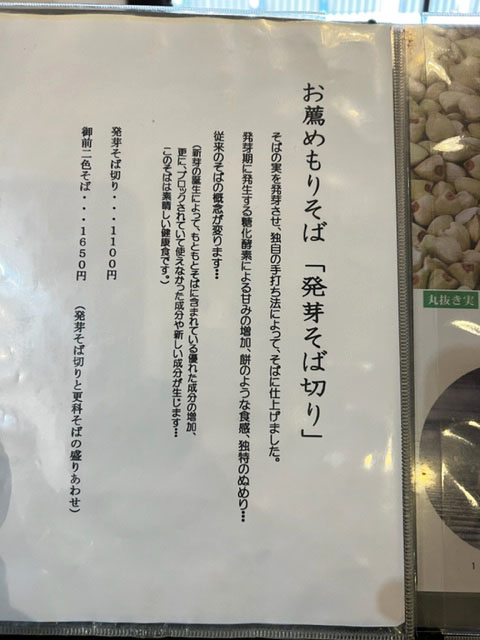 お薦めもりそば「発芽そば切り」
そばの実を発芽させ、独自の手打ち法によって、そばに仕上げました。
発芽期に発生する糖化酵素による甘みの増加、餅のような食感、独特のぬめり…
従来のそばの概念が変ります…
(新芽の誕生によって、もともとそばに含まれている優れた成分の増加、
更に、ブロックされていて使えなかった成分や新しい成分が生じます…
このそばは素晴しい健康食です。)
発芽そば切り・・・1100円
御前二色そば・・・1650円 (発芽そば切りと更科そばの盛りあわせ)
丸抜き実
1